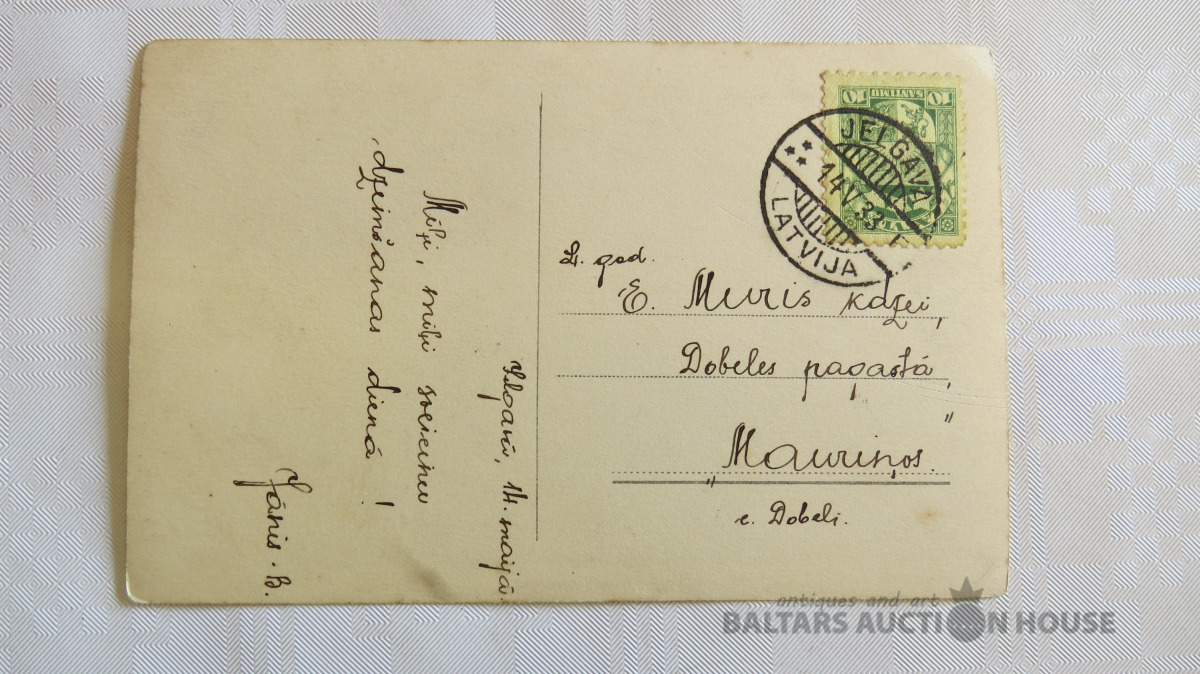 Jelgavā, 14. maijā.
Mīļi, mīļi sveicieni
dzimšanas dienā!
Jānis. B.
10 SANTIMU 10
JELGAVA
14 V 33
LATVIJA
L. god.
E. Muris kdzei,
Dobeles pagastā,
"Mauriņos."
c. Dobeli.
antiques and art
BALTARS AUCTION HOUSE